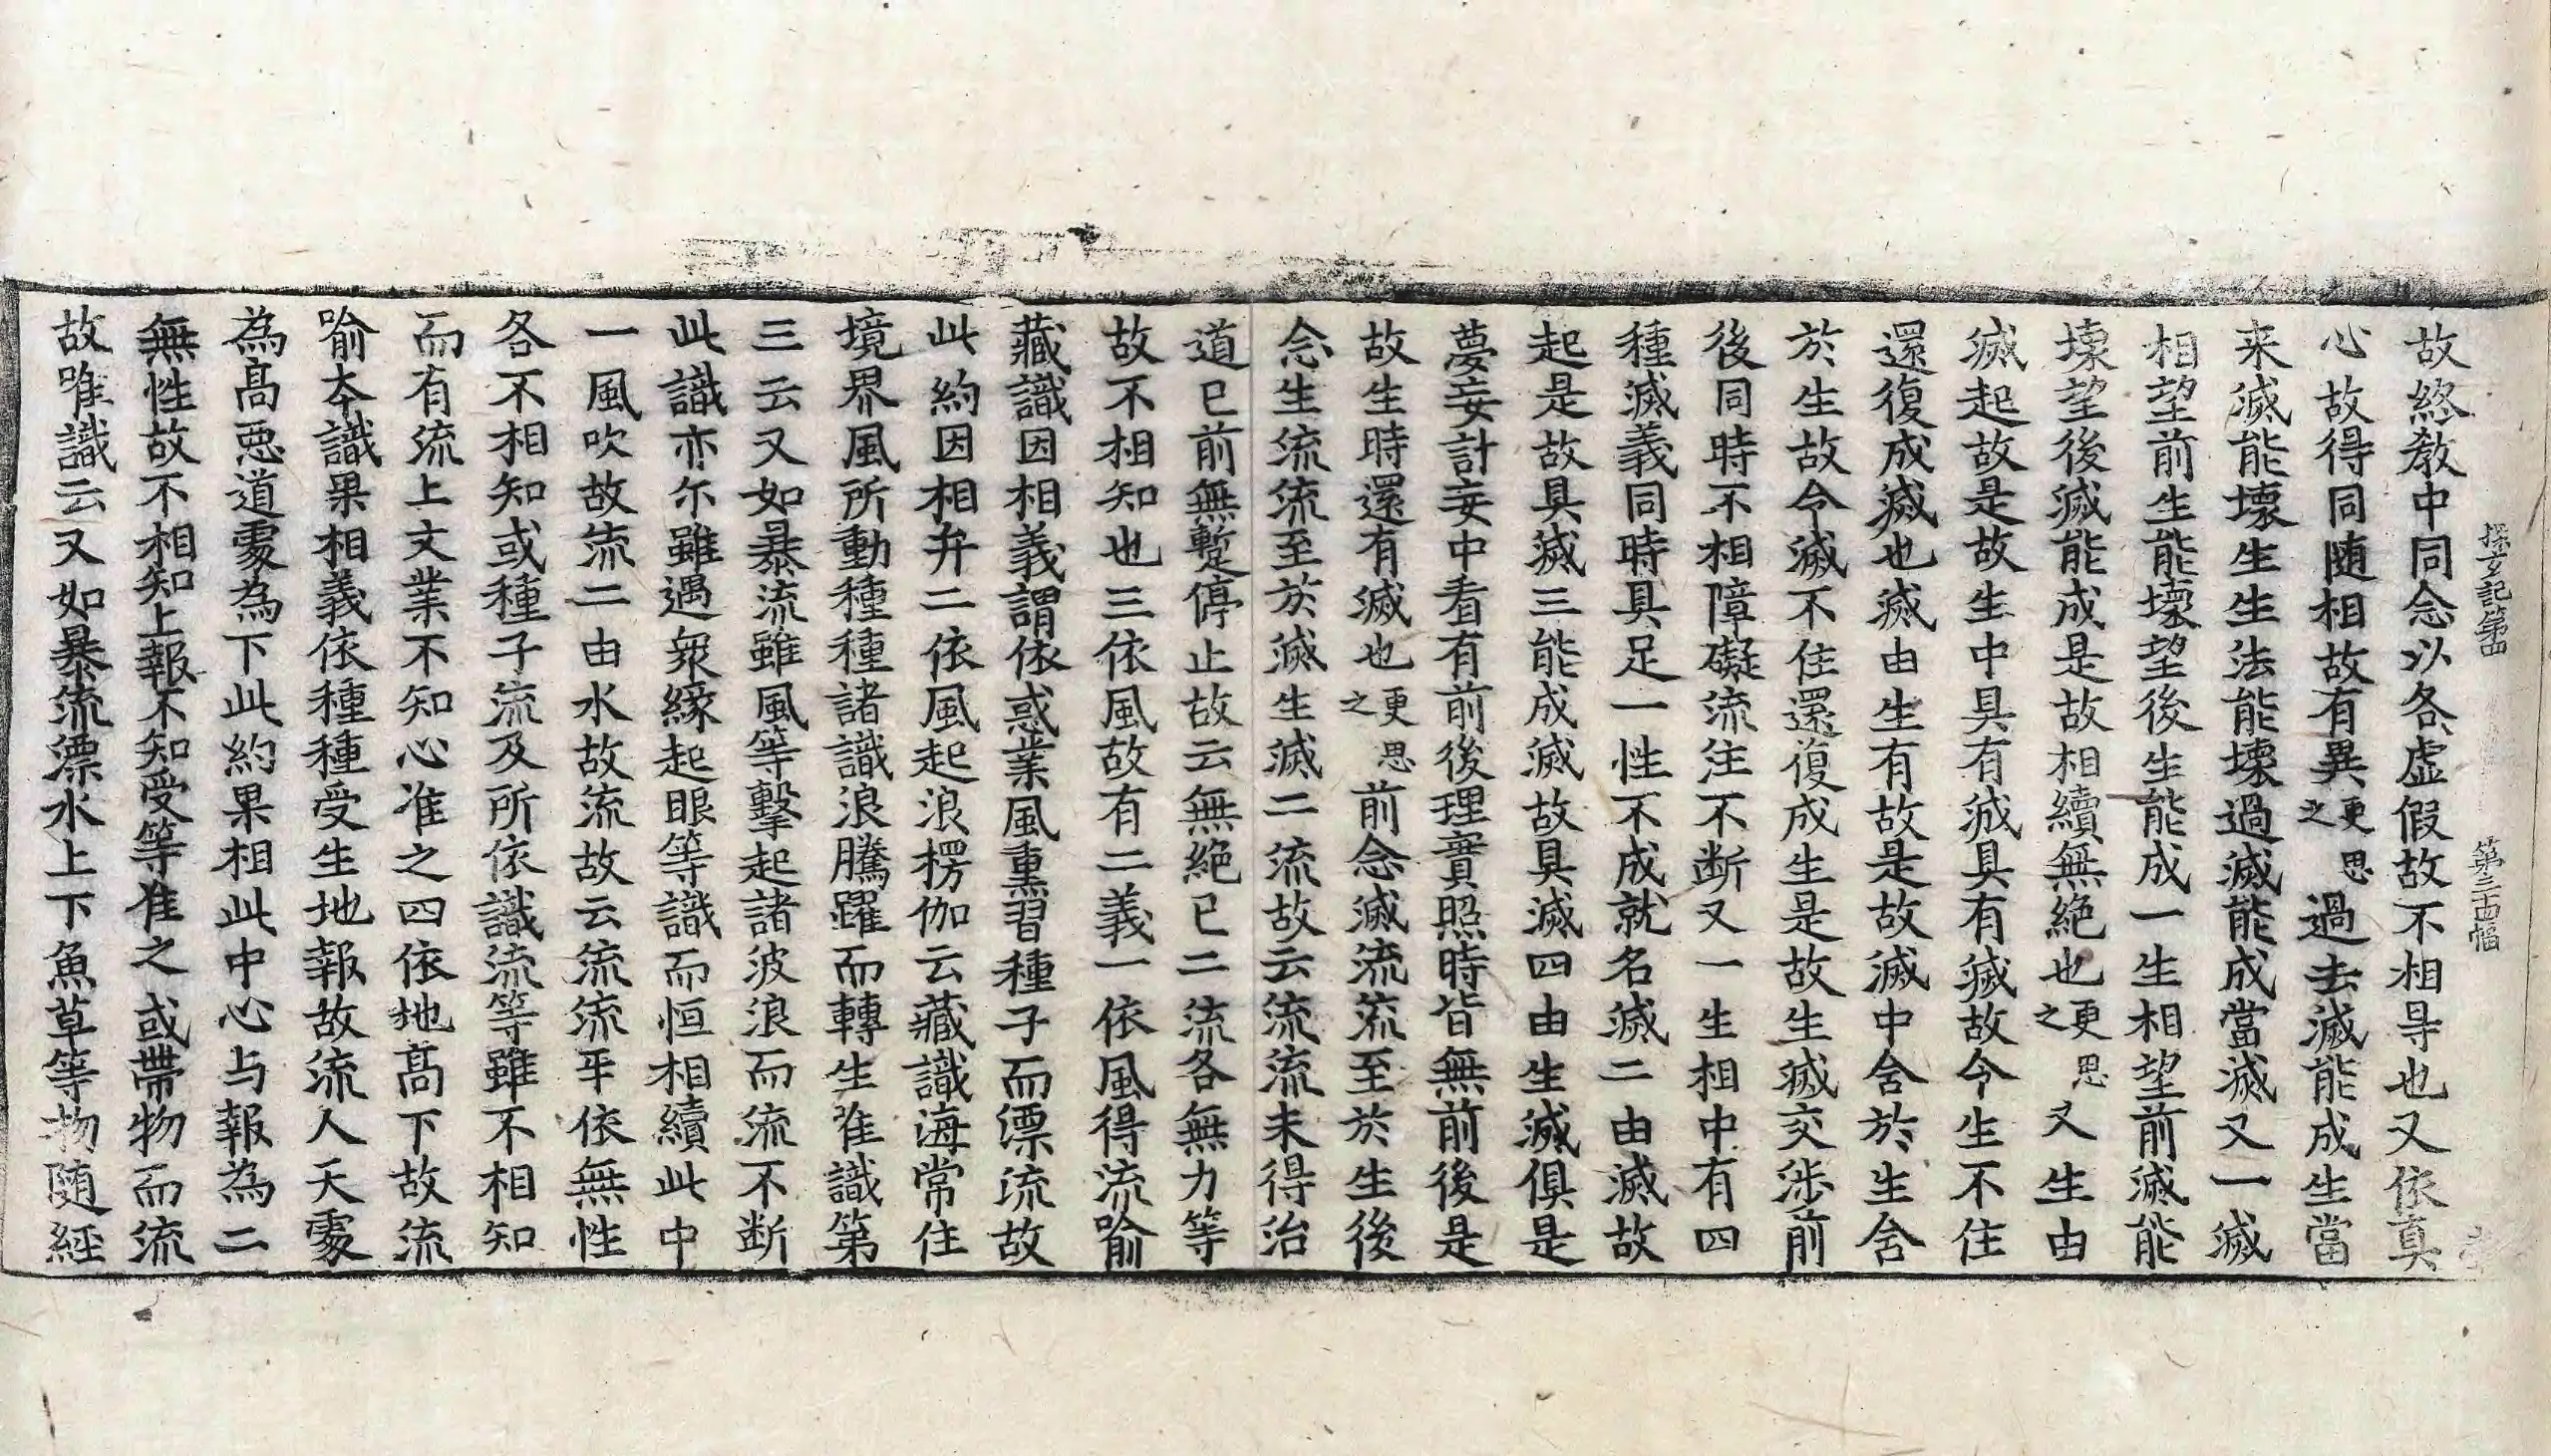 探玄記第四　第三十四幅
故終教中同念以各虛假故不相㝵也又依真
心故得同随相故有異更思之過去滅能成生當
来滅能壞生生法能壞過滅能成當滅又一滅
相望前生能壞望後生能成一生相望前滅能
壞望後滅能成是故相續無絶也更思之又生由
滅起故是故生中具有滅具有滅故令生不住
還復成滅也滅由生有故是故滅中含於生含
於生故令滅不住還復成生是故生滅交渉前
後同時不相障礙流注不断又一生相中有四
種滅義同時具足一性不成就名滅二由滅故
起是故具滅三能成滅故具滅四由生滅俱是
夢妄計妄中看有前後理實照時皆無前後是
故生時還有滅也更思之前念滅流流至於生後
念生流流至於滅生滅二流故云流流未得治
道已前無蹔停止故云無絶已二流各無力等
故不相知也三依風故有二義一依風得流喻
藏識因相義謂依惑業風熏習種子而漂流故
此約因相弁二依風起浪楞伽云藏識海常住
境界風所動種種諸識浪騰躍而轉生唯識第
三云又如暴流雖風等擊起諸波浪而流不断
此識亦尒雖遇衆緣起眼等識而恒相續此中
一風吹故流二由水故流故云流流平依無性
各不相知或種子流及所依識流等雖不相知
而有流上文業不知心准之四依地高下故流
喻本識果相義依種種受生地報故流人天䖏
為高惡道䖏為下此約果相此中心与報為二
無性故不相知上報不知受等准之或帶物而流
故唯識云又如暴流漂水上下魚草等物随經